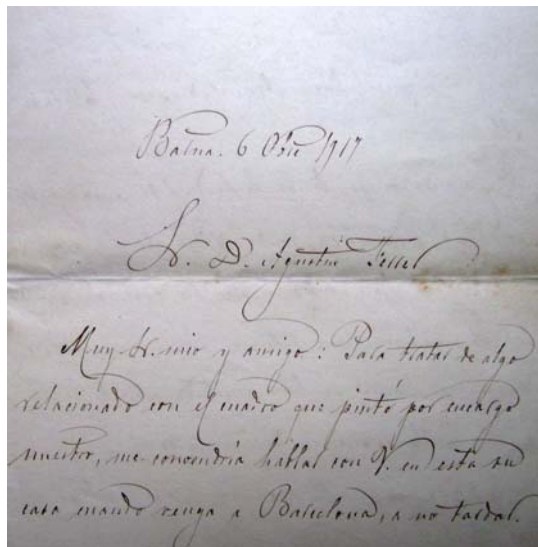 Balna. 6 Obre 1917
Sr. D. Agustin Ferrer
Muy Sr. mio y amigo: Para tratar de algo
relacionado con el cuadro que pintó por encargo
nuestro, me convendría hablar con V. en esta su
casa cuando venga a Barcelona, a no tardar.